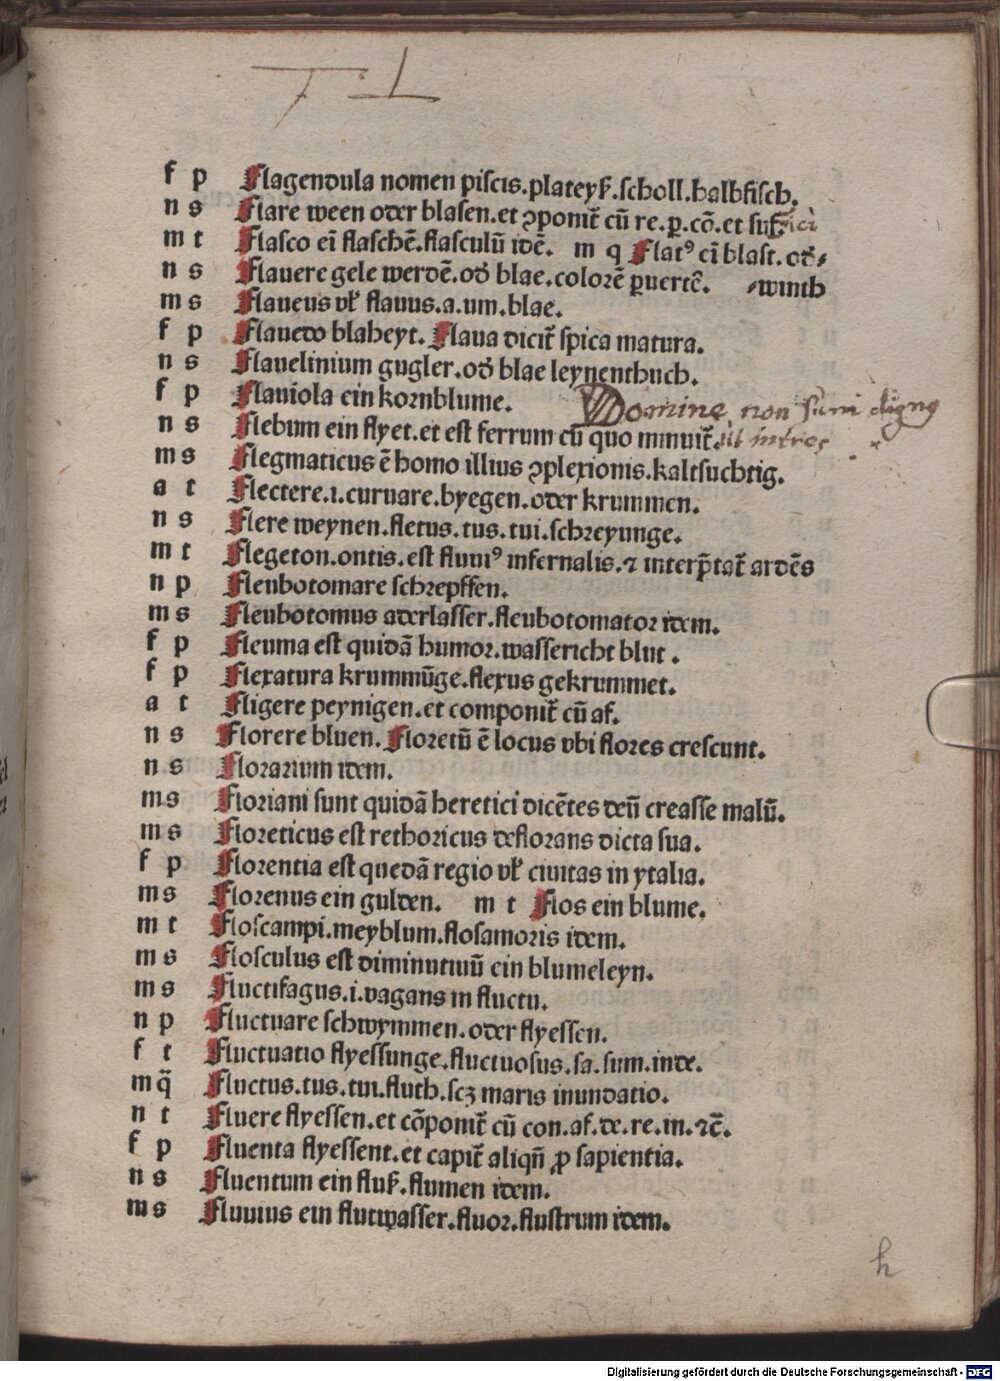 F L
f p Flagendula nomen piscis.plateyß.scholl.halbfisch.
n s Flare ween oder blasen.et ɔponit̃ cũ re.p̱.cõ.et suf.
m t Flasco eĩ flaschẽ.flasculũ idẽ. m q Flatꝰ eĩ blast.od̕⸗
n s Flauere gele werdẽ.od̕ blae.colorẽ p̱uertẽ. ⸗winth
m s Flaueus vl̕ flauus.a.um.blae.
f p Flauedo blaheyt. Flaua dicit̃ spica matura.
n s Flauelinium gugler.od̕ blae leynenthuch.
f p Flauiola ein kornblume. Domine non sum dign9
n s Flebum ein flyet.et est ferrum cũ quo minuit̃. ut intres
m s Flegmaticus ẽ homo illius ɔplexionis.kaltsuchtig.
a t Flectere.i.curuare.byegen.oder krummen.
n s Flere weynen.fletus.tus.tui.schreyunge.
m t Flegeton.ontis.est fluuiꝰ infernalis.⁊ interp̃tat̃ ardẽs
n p Fleubotomare schrepffen.
m s Fleubotomus aderlasser.fleubotomator idem.
f p Fleuma est quidã humor.wassericht blut .
f p Flexatura krummũge.flexus gekrummet.
a t Fligere peynigen.et componit̃ cũ af.
n s Florere bluen. Floretũ ẽ locus vbi flores crescunt.
n s Florarium idem.
m s Floriani sunt quidã heretici dicẽtes deũ creasse malũ.
m s Floreticus est rethoricus deflorans dicta sua.
f p Florentia est quedã regio vl̕ ciuitas in ytalia.
m s Florenus ein gulden. m t Flos ein blume.
m t Floscampi.meyblum.flosamoris idem.
m s Flosculus est diminutiuũ ein blumeleyn.
m s Fluctifagus.i.vagans in fluctu.
n p Fluctuare schwymmen.oder flyessen.
f t Fluctuatio flyessunge.fluctuosus.sa.sum.inde.
m q̃ Fluctus.tus.tui.fluth.scꝫ maris inundatio.
n t Fluere flyessen.et cõponit̃ cũ con.af.de.re.in.⁊c̃.
f p Fluenta flyessent.et capit̃ aliqñ ꝓ sapientia.
n s Fluentum ein fluß.flumen idem.
m s Fluuius ein flutwasser.fluor.flustrum idem.
h
Digitalisierung gefördert durch die Deutsche Forschungsgemeinschaft - DFG